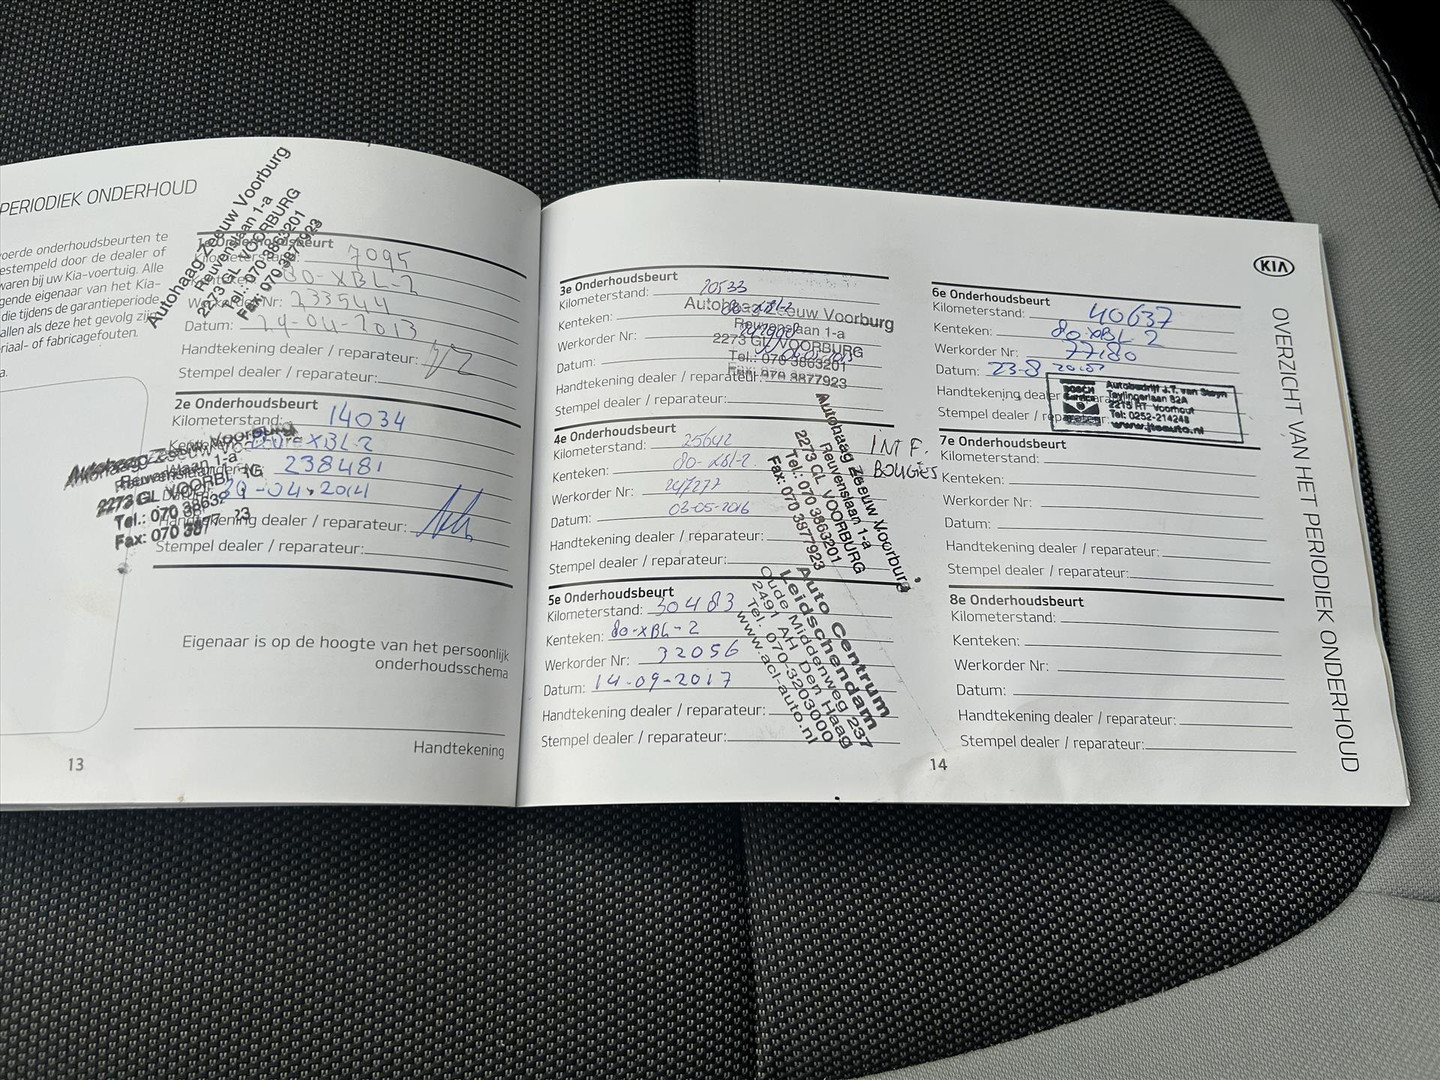 PERIODIEK ONDERHOUD
voerde onderhoudsbeurten te
estempeld door de dealer of
waren bij uw Kia-voertuig. Alle
gende eigenaar van het Kia-
die tijdens de garantieperiode
allen als deze het gevolg zijn
riaal- of fabricagefouten.
a.
1e Onderhoudsbeurt
7095
80-XBL-2
233544
Datum: 24-04-2013
Handtekening dealer / reparateur:
Stempel dealer / reparateur:
Autohaag Zeeuw Voorburg
Reuvenslaan 1-a
2273 GL VOORBURG
Tel.: 070 3863201
Fax: 070 3877923
2e Onderhoudsbeurt
Kilometerstand: 14034
XBL2
238481
-04-2014
Handtekening dealer / reparateur:
Stempel dealer / reparateur:
Autohaag Zeeuw Voorburg
Reuvenslaan 1-a
2273 GL VOORBURG
Tel.: 070
Fax: 070
Eigenaar is op de hoogte van het persoonlijk
onderhoudsschema
Handtekening
13
3e Onderhoudsbeurt
Kilometerstand: 20533
Kenteken: 80-XBL-2
Werkorder Nr:
Datum:
Handtekening dealer / reparateur:
Stempel dealer / reparateur:
Autohaag Zeeuw Voorburg
Reuvenslaan 1-a
2273 GL VOORBURG
Tel.: 070 3863201
Fax: 070 3877923
4e Onderhoudsbeurt
Kilometerstand: 25642
Kenteken: 80-XBL-2
Werkorder Nr: 247277
Datum: 03-05-2016
Handtekening dealer / reparateur:
Stempel dealer / reparateur:
Autohaag Zeeuw Voorburg
Reuvenslaan 1-a
2273 GL VOORBURG
Tel.: 070 3863201
Fax: 070 3877923
INT F.
BOUGIES
5e Onderhoudsbeurt
Kilometerstand: 30483
Kenteken: 80-XBL-2
Werkorder Nr: 32056
Datum: 14-09-2017
Handtekening dealer / reparateur:
Stempel dealer / reparateur:
Auto Centrum
Leidschendam
Oude Middenweg 237
2491 AH Den Haag
Tel. 070-3203000
www.acl-auto.nl
KIA
6e Onderhoudsbeurt
Kilometerstand: 40637
Kenteken: 80 XBL 2
Werkorder Nr: 77180
Datum: 23-8
Handtekening dealer
Stempel dealer /
BOSCH
Service
Autobedrijf J.T. van Steyn
Teylingerlaan 82A
2215 RT Voorhout
Tel: 0252-214248
www.jtsauto.nl
7e Onderhoudsbeurt
Kilometerstand:
Kenteken:
Werkorder Nr:
Datum:
Handtekening dealer / reparateur:
Stempel dealer / reparateur:
8e Onderhoudsbeurt
Kilometerstand:
Kenteken:
Werkorder Nr:
Datum:
Handtekening dealer / reparateur:
Stempel dealer / reparateur:
14
OVERZICHT VAN HET PERIODIEK ONDERHOUD